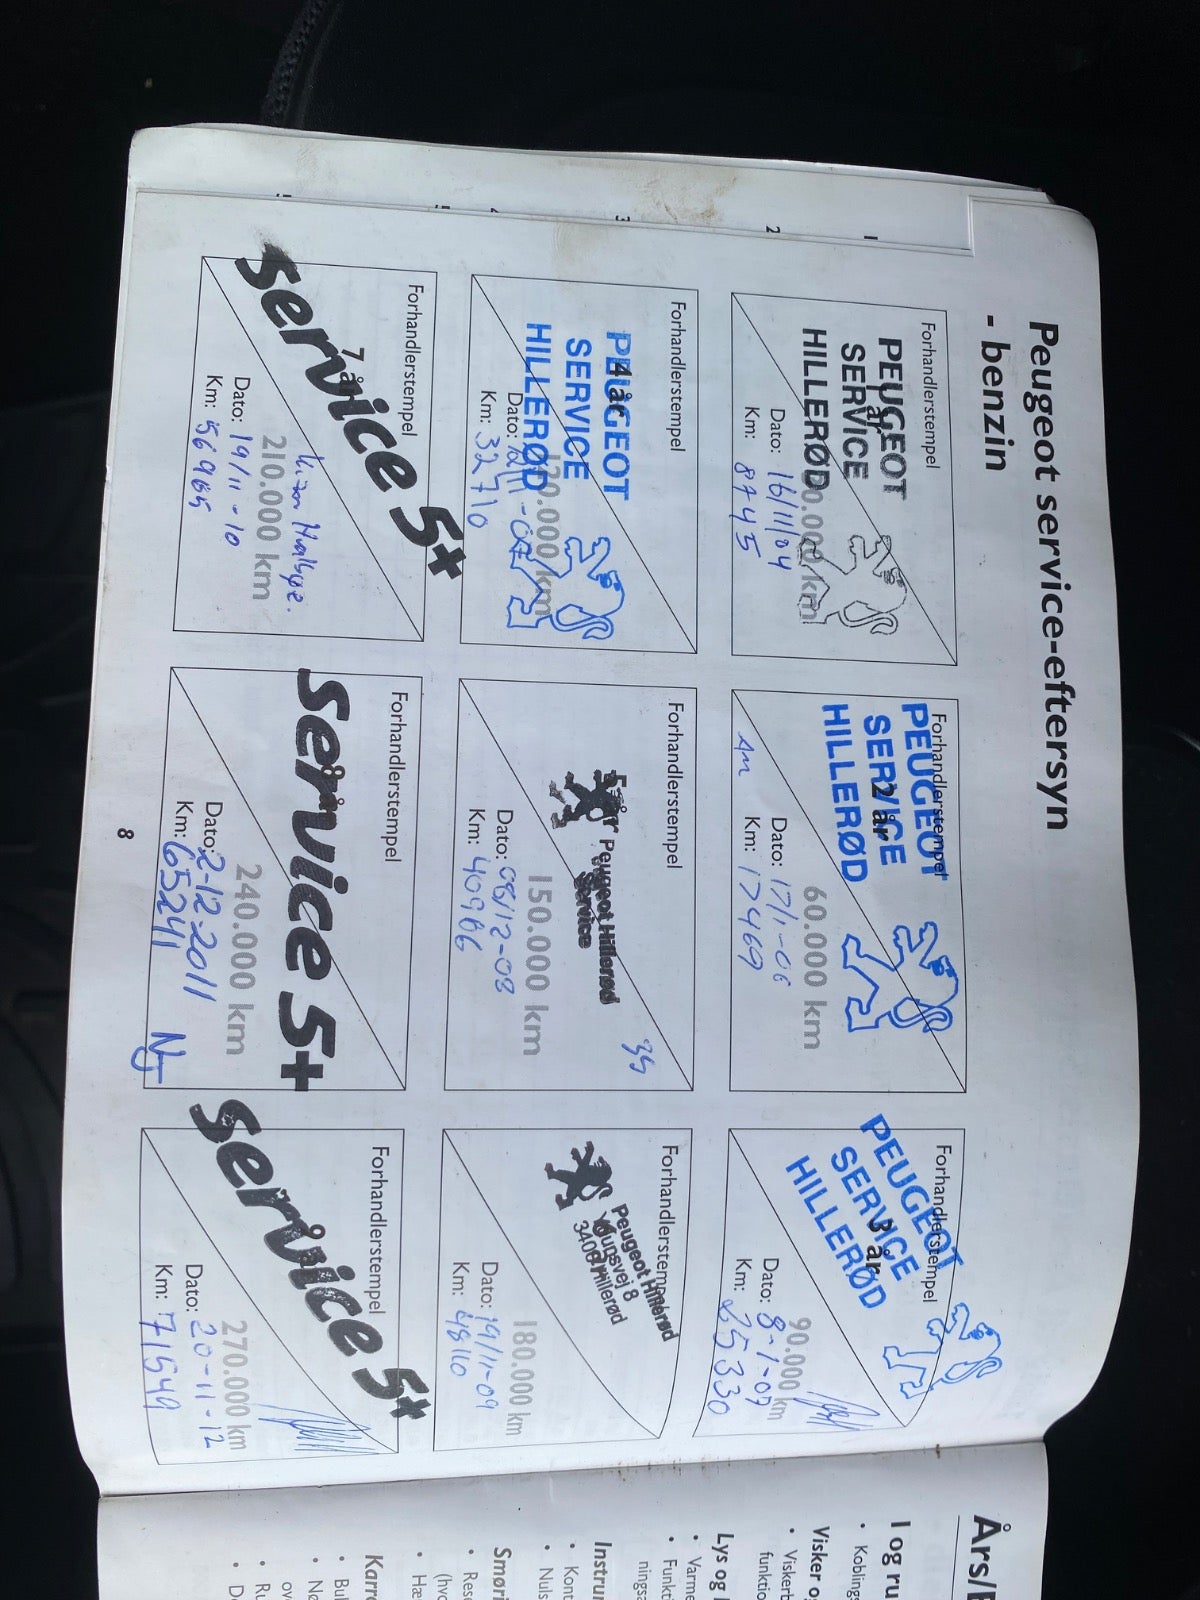 Peugeot service-eftersyn
- benzin
Forhandlerstempel
PEUGEOT
SERVICE
HILLERØD
1 år
30.000 km
Dato: 16/11/04
Km: 8745
Forhandlerstempel
PEUGEOT
SERVICE
HILLERØD
2 år
60.000 km
Dato: 17/1-06
Km: 17469
Am
Forhandlerstempel
PEUGEOT
SERVICE
HILLERØD
3 år
90.000 km
Dato: 8-1-07
Km: 25330
Forhandlerstempel
PEUGEOT
SERVICE
HILLERØD
4 år
120.000 km
Dato: 12/11-07
Km: 32710
Forhandlerstempel
5 år
Peugeot Hillerød
Service
150.000 km
Dato: 08/12-08
Km: 40986
Forhandlerstempel
Peugeot Hillerød
3400 Hillerød
180.000 km
Dato: 19/11-09
Km: 48110
Forhandlerstempel
service 5+
7 år
210.000 km
Dato: 19/11-10
Km: 56965
Forhandlerstempel
Service 5+
240.000 km
Dato: 2-12-2011
Km: 65241
Forhandlerstempel
service 5+
270.000 km
Dato: 20-11-12
Km: 71549
8
1
2
3
Års/
I og ru
• Kobling
Visker o
• Viskerb
funktio
Lys og
• Varme
• Funkti
ningsa
Instru
• Kont
• Nuls
Smøri
• Rese
(hvo
• Hæ
Karr